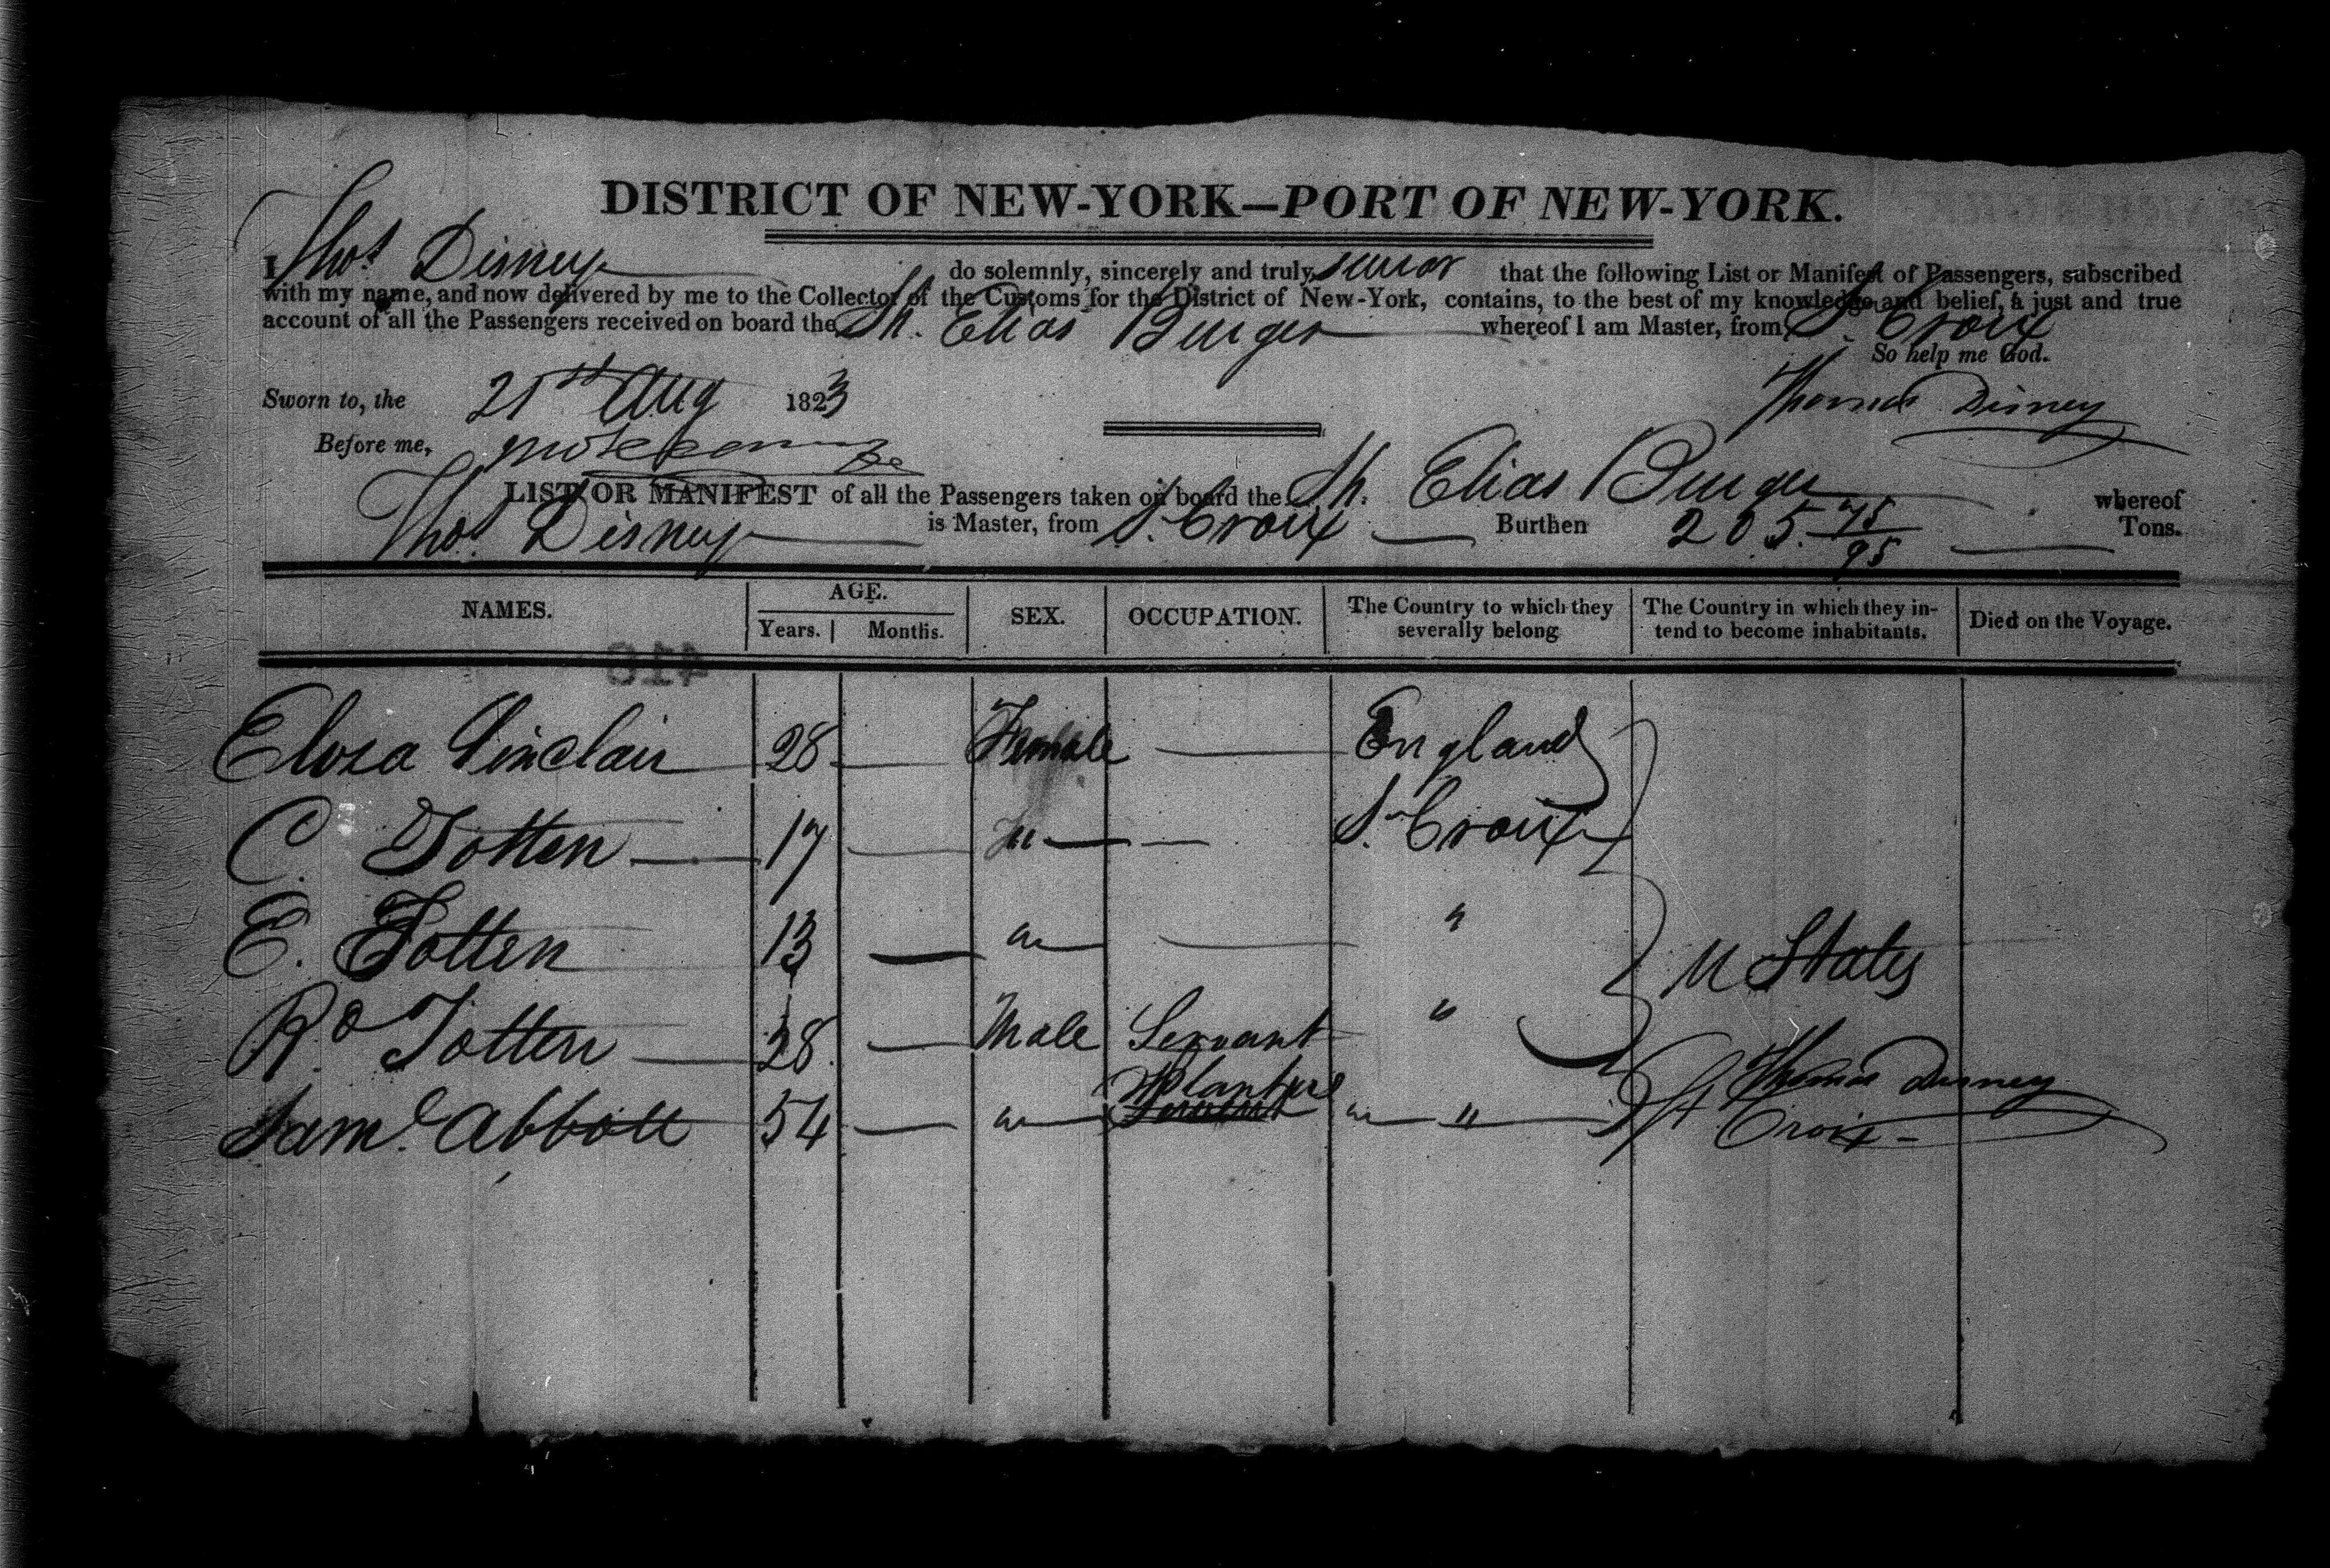 DISTRICT OF NEW-YORK—PORT OF NEW-YORK.
I Thos Disney do solemnly, sincerely and truly swear that the following List or Manifest of Passengers, subscribed
with my name, and now delivered by me to the Collector of the Customs for the District of New-York, contains, to the best of my knowledge and belief, a just and true
account of all the Passengers received on board the Sh. Elias Burger whereof I am Master, from St. Croix
So help me God.
Sworn to, the 21st Aug 1823
Thomas Disney
Before me,
LIST OR MANIFEST of all the Passengers taken on board the Sh. Elias Burger whereof
Thos Disney is Master, from St. Croix Burthen 205 75/95 Tons.
NAMES. AGE. Years. Months. SEX. OCCUPATION. The Country to which they severally belong The Country in which they intend to become inhabitants. Died on the Voyage.
418
Eloza Sinclair 28 — Female — England
C. Totten 17 — " — St. Croix
E. Totten 13 — " — " U States
Rd Totten 28 — Male Servant "
Thomas Disney
Saml Abbott 54 — " Planter Servant " " St Croix